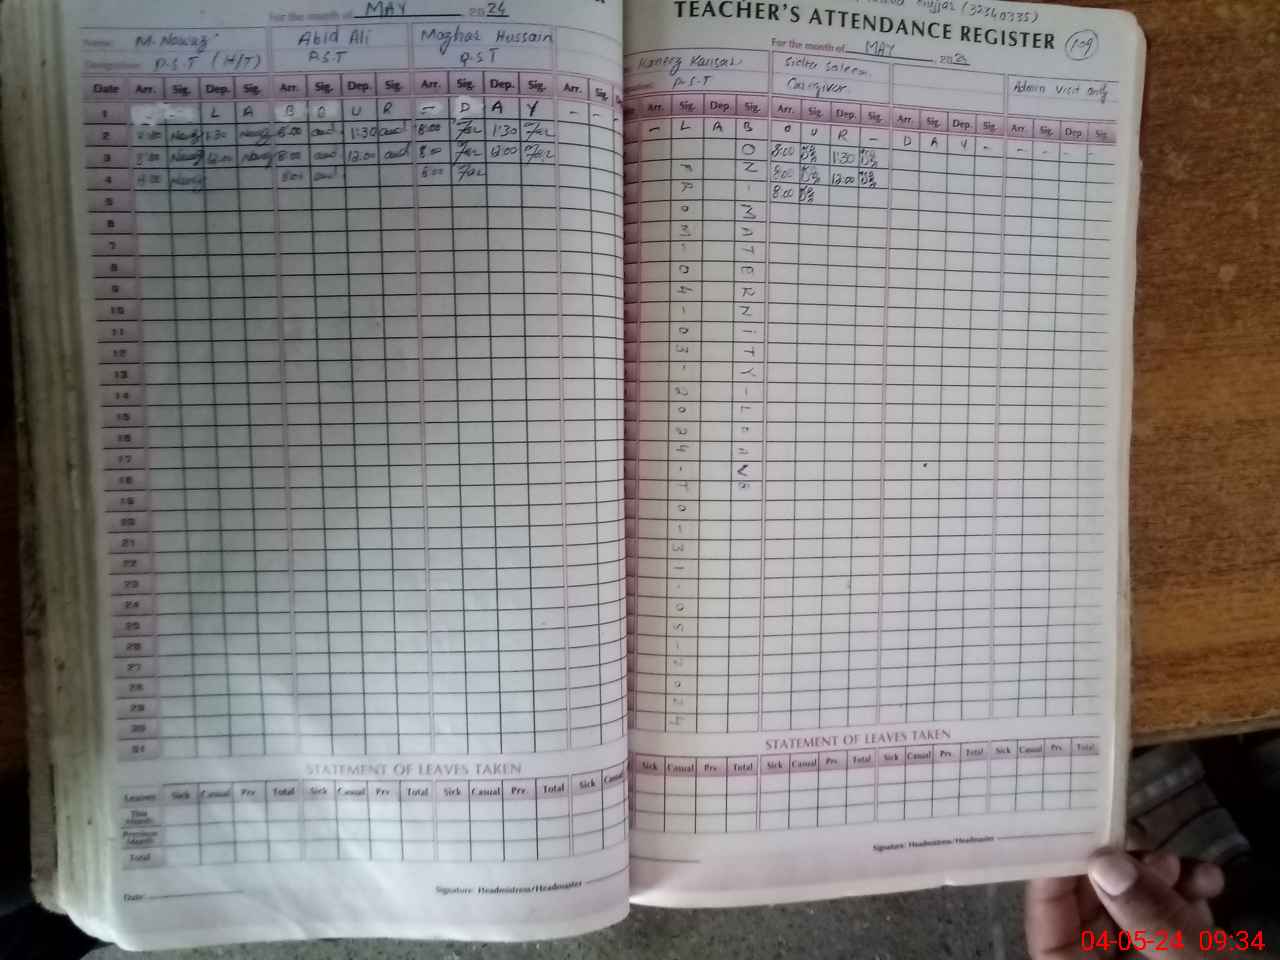 For the month of MAY 2024
Name: M. Nawaz Abid Ali Mazhar Hussain
P.S.T (H/T) P.S.T P.S.T
Date Arr. Sig. Dep. Sig. Arr. Sig. Dep. Sig. Arr. Sig. Dep. Sig. Arr. Sig.
1 - - L A B O U R - D A Y - -
2 8:00 Nawaz 1:30 Nawaz 8:00 1:30 8:00 1:30
3 8:00 Nawaz 12:00 Nawaz 8:00 12:00 8:00 12:00
4 8:00 Nawaz 8:00 8:00
5
6
7
8
9
10
11
12
13
14
15
16
17
18
19
20
21
22
23
24
25
26
27
28
29
30
31
STATEMENT OF LEAVES TAKEN
Leaves Sick Casual Prv. Total Sick Casual Prv. Total Sick Casual Prv. Total Sick Casual
This Month
Previous Month
Total
Date:
Signature: Headmistress/Headmaster
(32340335)
TEACHER'S ATTENDANCE REGISTER 109
For the month of MAY, 20
Kaneez Kausar Saleem Admin visit only
P.S.T Caregiver
Arr. Sig. Dep. Sig. Arr. Sig. Dep. Sig. Arr. Sig. Dep. Sig. Arr. Sig. Dep. Sig.
- L A B O U R - D A Y - - - - -
8:00 1:30
8:00 12:00
8:00
FROM-04-03-2024-TO-31-05-2024
ON-MATERNITY-LEAVE
STATEMENT OF LEAVES TAKEN
Sick Casual Prv. Total Sick Casual Prv. Total Sick Casual Prv. Total Sick Casual Prv. Total
Signature: Headmistress/Headmaster
04-05-24 09:34